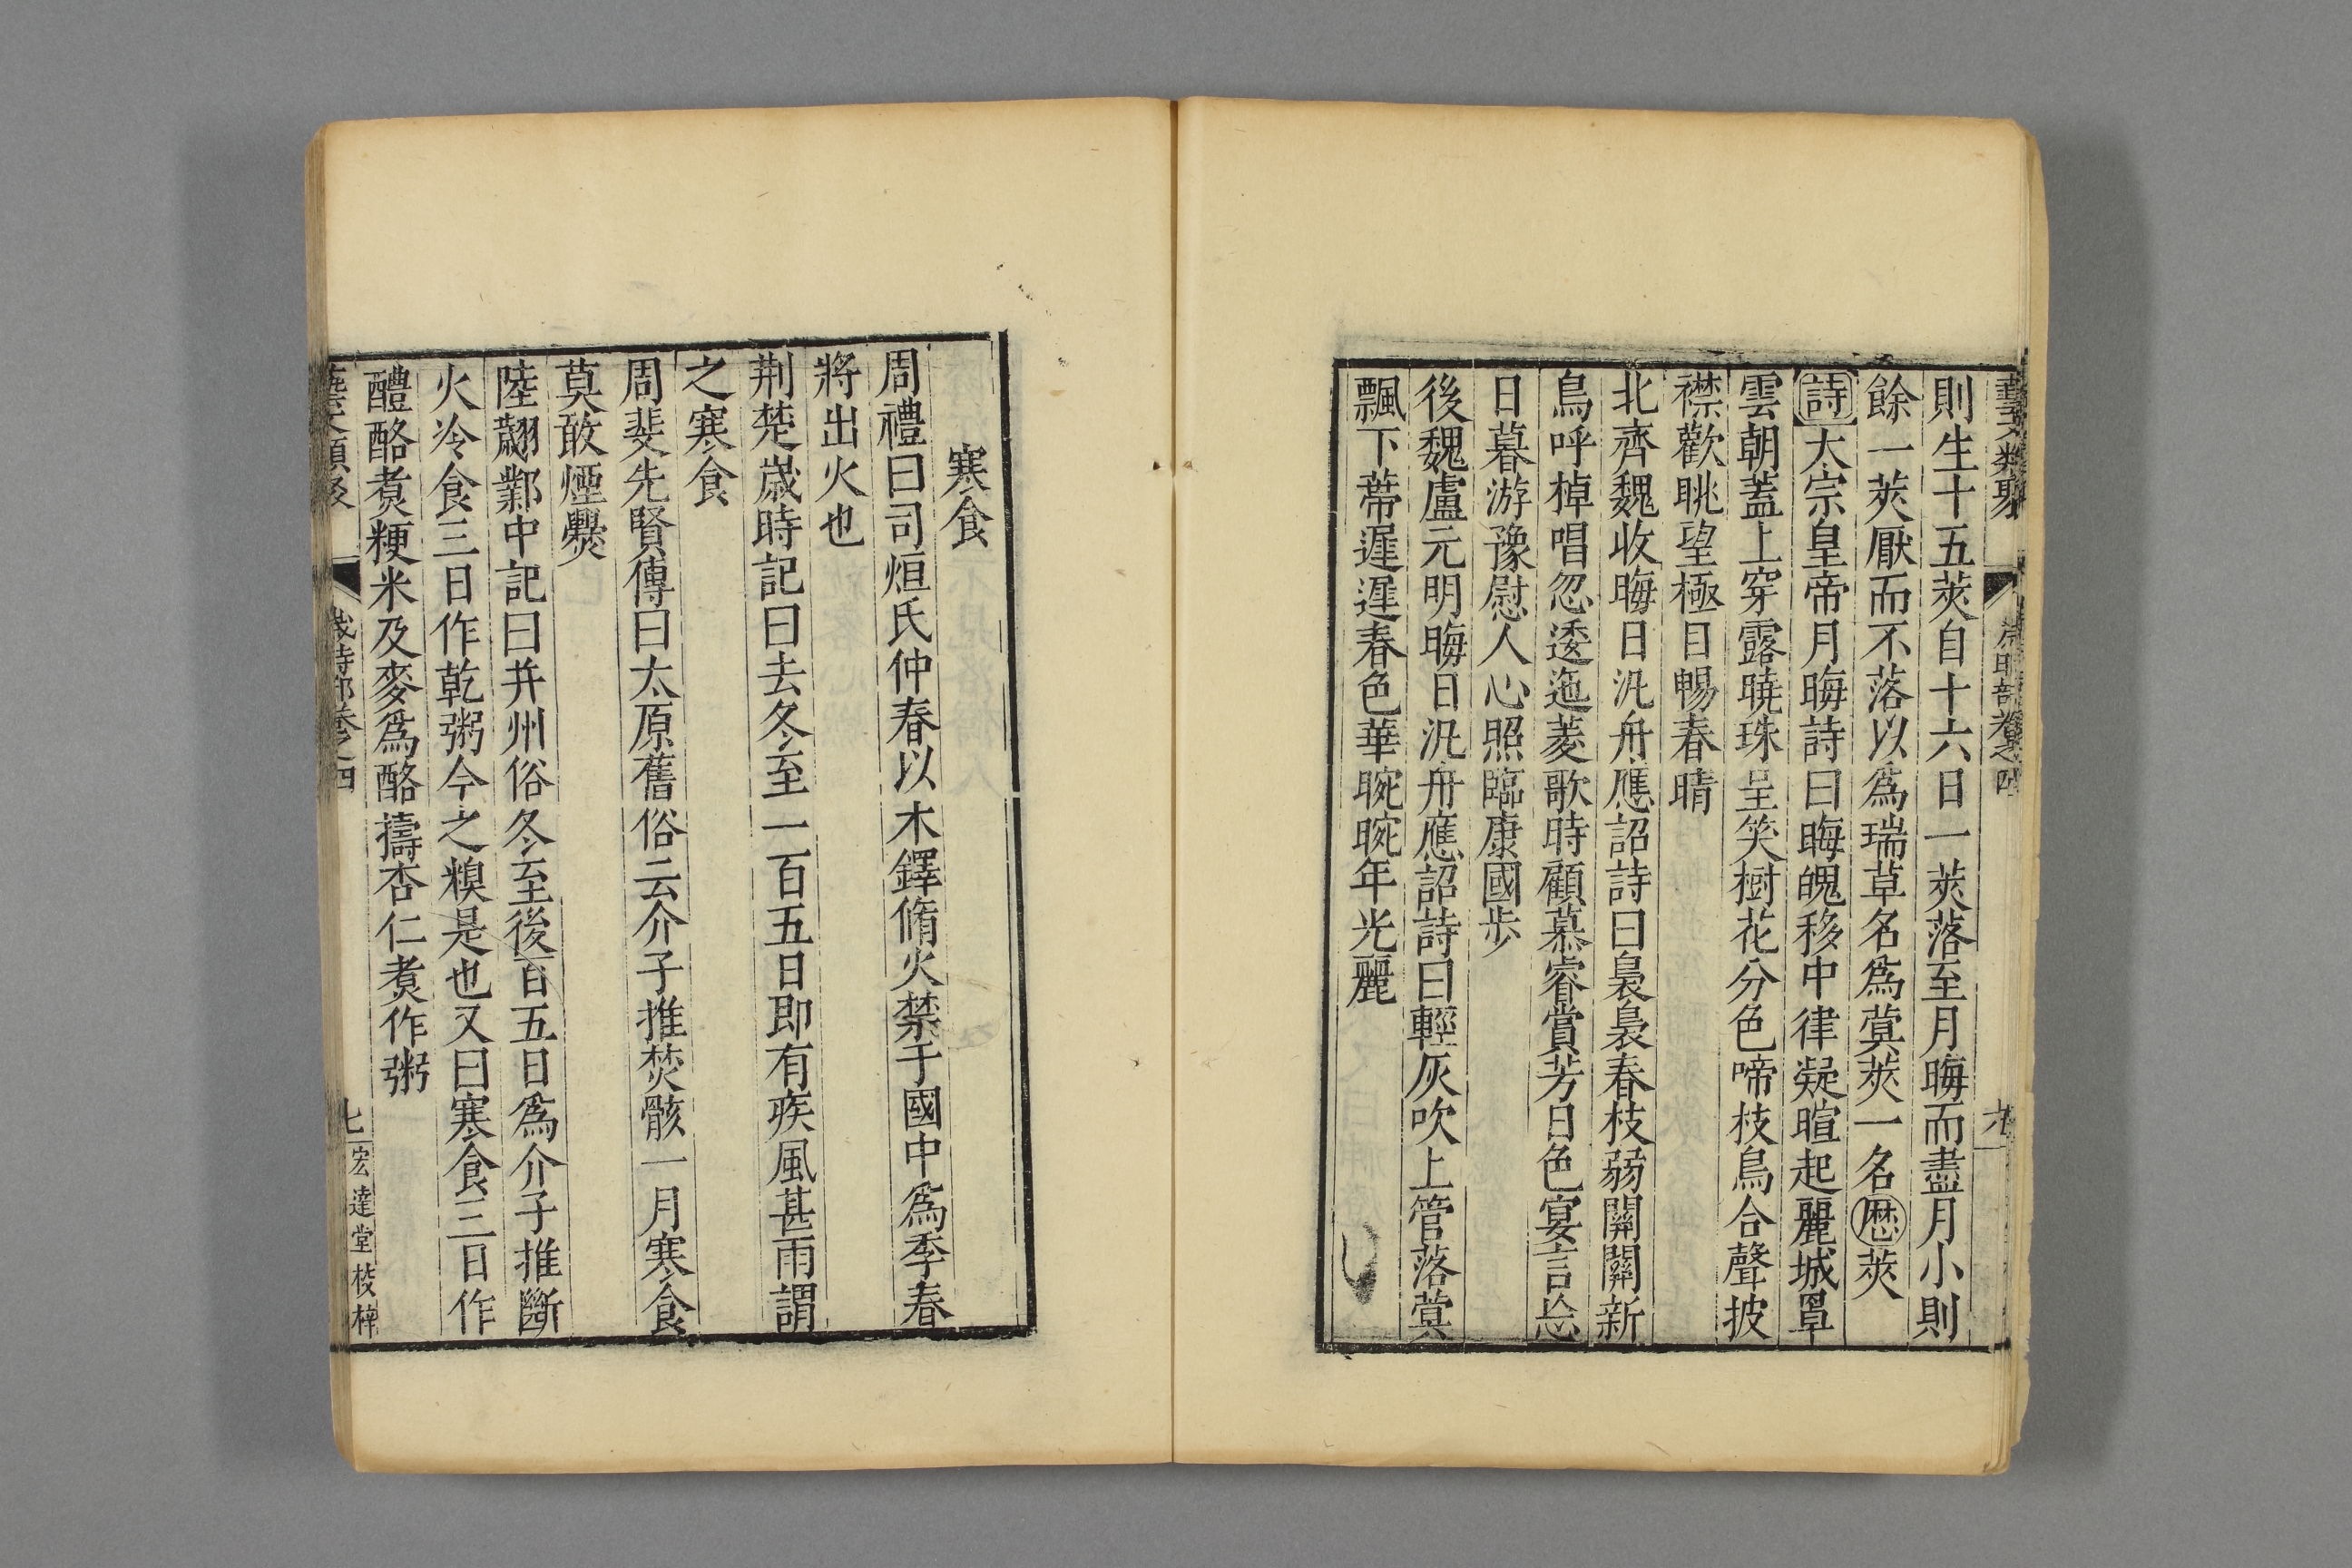 藝文類聚 歲時部卷之四
則生十五莢自十六日一莢落至月晦而盡月小則
餘一莢厭而不落以爲瑞草名爲蓂莢一名厯莢
詩太宗皇帝月晦詩曰晦魄移中律凝暄起麗城罩
雲朝蓋上穿露曉珠呈笑樹花分色啼枝鳥合聲披
襟歡眺望極目暢春晴
北齊魏收晦日汎舟應詔詩曰裊裊春枝弱關關新
鳥呼棹唱忽逶迤菱歌時顧慕睿賞芳日色宴言忩
日暮游豫慰人心照臨康國步
後魏盧元明晦日汎舟應詔詩曰輕灰吹上管落蓂
飄下蔕遲遲春色華晼晼年光麗
寒食
周禮曰司烜氏仲春以木鐸脩火禁于國中爲季春
將出火也
荆楚嵗時記曰去冬至一百五日即有疾風甚雨謂
之寒食
周斐先賢傳曰太原舊俗云介子推焚骸一月寒食
莫敢煙爨
陸翽鄴中記曰并州俗冬至後百五日爲介子推斷
火冷食三日作乾粥今之糗是也又曰寒食三日作
醴酪煮粳米及麥爲酪擣杏仁煮作粥
藝文類聚 歲時部卷之四 七 宏達堂校梓